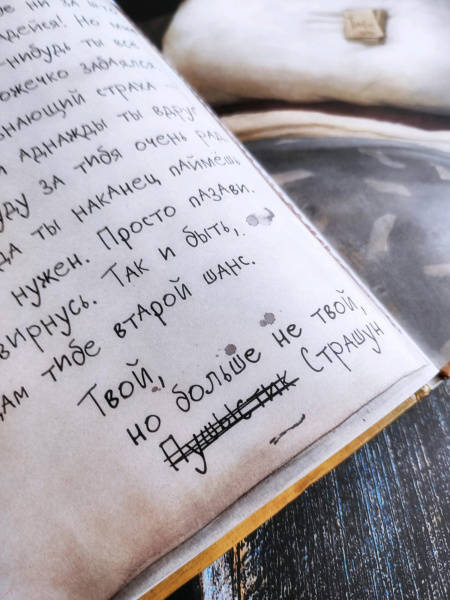 ни за
адейся! Но
-нибудь ты все
ожечко забаялся
знающий страха
аднажды ты вдруг
уду за тибя очень рад,
да ты наканец паймёшь
нужен. Просто пазави.
вирнусь. Так и быть,
дам тибе втарой шанс.
Твой,
но больше не твой,
Пушыстик Страшун